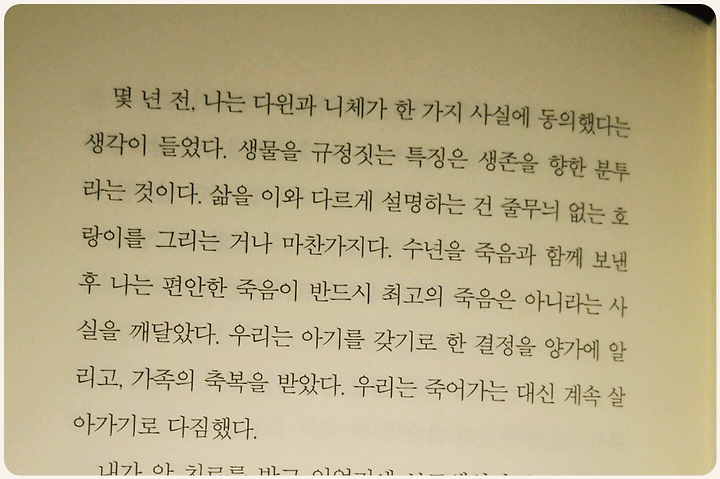 몇 년 전, 나는 다윈과 니체가 한 가지 사실에 동의했다는
생각이 들었다. 생물을 규정짓는 특징은 생존을 향한 분투
라는 것이다. 삶을 이와 다르게 설명하는 건 줄무늬 없는 호
랑이를 그리는 거나 마찬가지다. 수년을 죽음과 함께 보낸
후 나는 편안한 죽음이 반드시 최고의 죽음은 아니라는 사
실을 깨달았다. 우리는 아기를 갖기로 한 결정을 양가에 알
리고, 가족의 축복을 받았다. 우리는 죽어가는 대신 계속 살
아가기로 다짐했다.
내가 암 치료를 받고